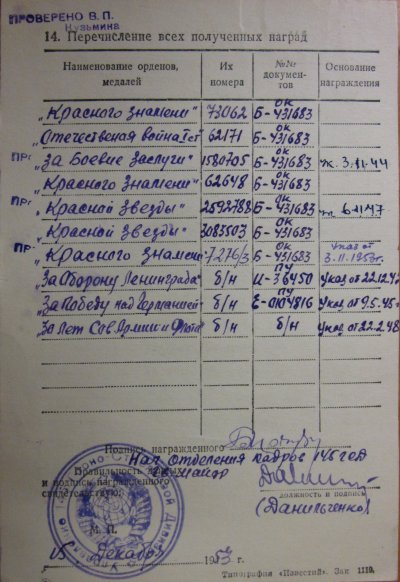 ПРОВЕРЕНО В. П.
Кузьмина
14. Перечисление всех полученных наград
Наименование орденов, медалей
Их номера
№№ документов
Основание награждения
„Красного Знамени" 73062 Б-431683 ОК
„Отечественая война I ст" 62171 Б-431683 ОК
„За Боевые Заслуги" 1580705 Б-431683 ОК 3.11.44
„Красного Знамени" 62648 Б-431683 ОК
„Красной Звезды" 2592788 Б-431683 ОК 6.11.47
„Красной Звезды" 3083503 Б-431683 ОК
„Красного Знамени" Б-431683 ОК Указ от 3.11.1953г.
„За Оборону Ленинграда" б/н И-36450 ПУ Указ от 22.12.42
„За Победу над Германией" б/н Е-0104816 ПУ Указ от 9.5.45г.
б/н б/н Указ от 22.2.48
Подпись награжденного
Нач. отделения кадров
Правильность данных
и подпись награжденного
свидетельствую:
майор
должность и подпись
М. П.
(Данильченко)
15 Декабря 1953 г.
Типография «Известий». Зак 1119.